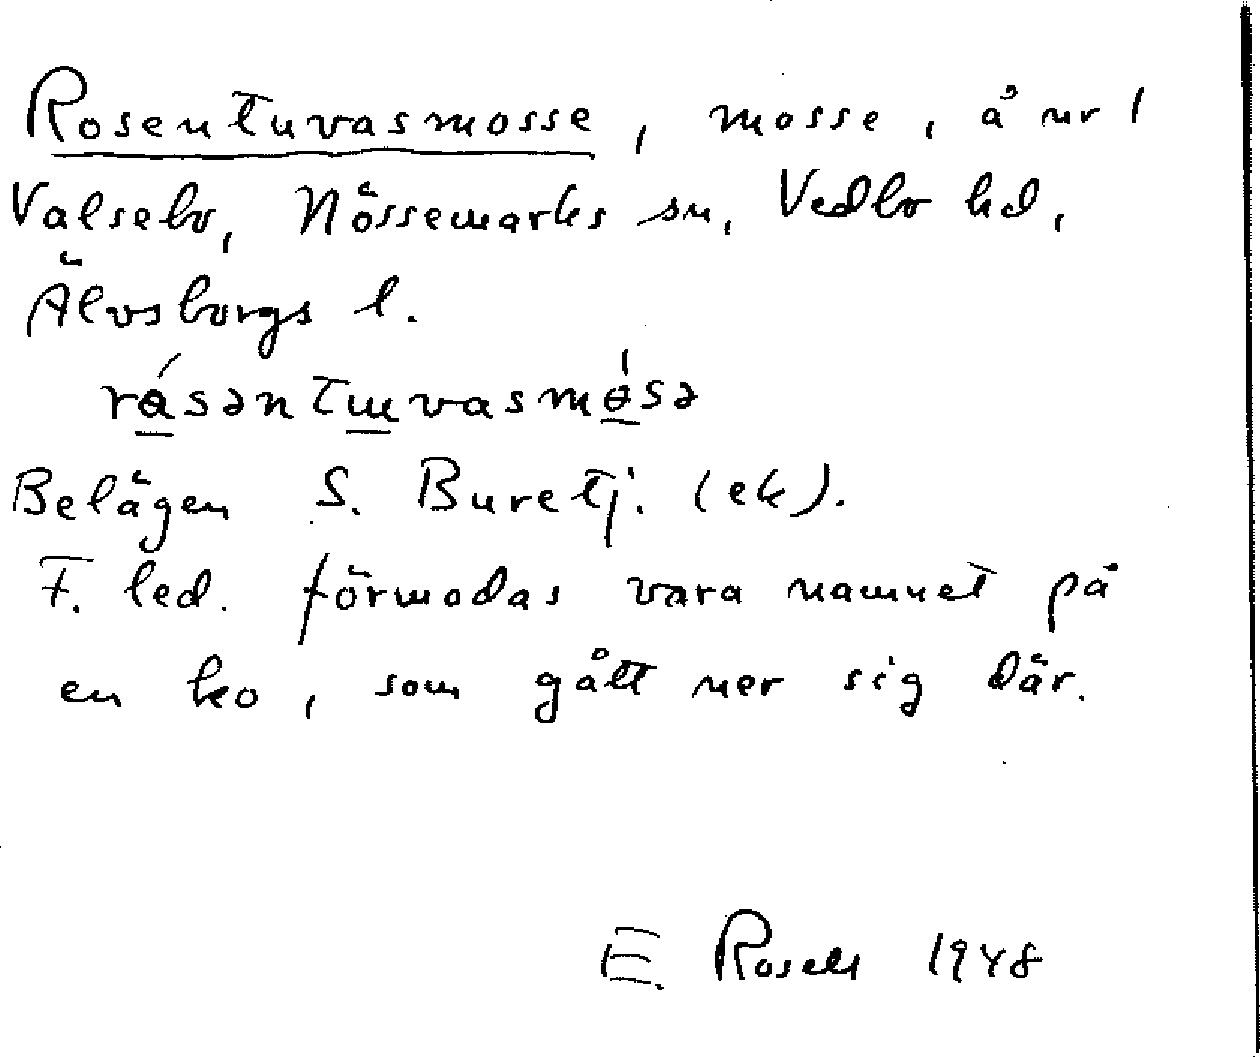 Rosentuvasmosse, mosse, å nr 1
Valsebo, Nössemarks sn, Vedbo hd,
Älvsborgs l.
rɵ́səntɯvasmɵ́sə
Belägen S. Buretj. (ek).
F. led. förmodas vara namnet på
en ko, som gått ner sig där.
E. Rosell 1948